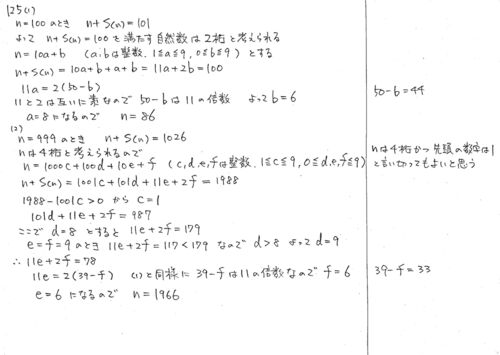 125(1)
n=100 のとき n+S(n)=101
よって n+S(n)=100 を満たす自然数は2桁と考えられる
n=10a+b (a,bは整数, 1≦a≦9, 0≦b≦9) とする
n+S(n)=10a+b+a+b=11a+2b=100
11a=2(50-b)
11と2は互いに素なので 50-bは11の倍数 よって b=6
50-b=44
a=8になるので n=86
(2)
n=999 のとき n+S(n)=1026
nは4桁と考えられるので
nは4桁かつ先頭の数字は1
n=1000c+100d+10e+f (c,d,e,fは整数, 1≦c≦9, 0≦d,e,f≦9)
と言い切ってもよいと思う
n+S(n)=1001c+101d+11e+2f=1988
1988-1001c>0 から c=1
101d+11e+2f=987
ここで d=8 とすると 11e+2f=179
e=f=9のとき 11e+2f=117<179 なので d>8 よって d=9
∴ 11e+2f=78
11e=2(39-f) (1)と同様に 39-fは11の倍数なので f=6
39-f=33
e=6 になるので n=1966